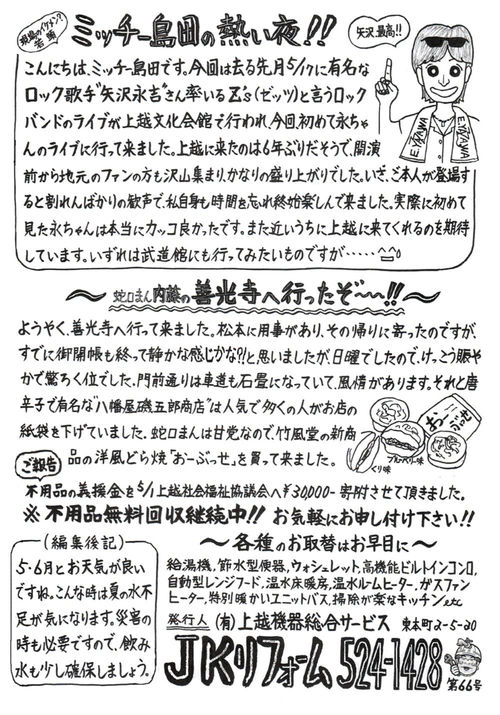 現場のイケメン?若菊
ミッチー島田の熱い夜!!
矢沢、最高!!
E.YAZAWA
E.YAZAWA
こんにちは、ミッチー島田です。今回は去る先月5/17に有名な
ロック歌手"矢沢永吉"さん率いるZ's(ゼッツ)と言うロック
バンドのライブが上越文化会館で行われ、今回、初めて永ちゃ
んのライブに行って来ました。上越に来たのは6年ぶりだそうで、開演
前から地元のファンの方も沢山集まり、かなりの盛り上がりでした。いざ、ご本人が登場す
ると割れんばかりの歓声で、私自身も時間を忘れ終始楽しんで来ました。実際に初めて
見た永ちゃんは本当にカッコ良かったです。また近いうちに上越に来てくれるのを期待
しています。いずれは武道館にも行ってみたいものですが‥‥‥^^;
〜蛇口まん内藤の善光寺へ行ったぞ〜〜!!〜
ようやく、善光寺へ行って来ました。松本に用事があり、その帰りに寄ったのですが、
すでに御開帳も終って静かな感じかな?!と思いましたが、日曜でしたので、けっこう賑や
かで驚ろく位でした。門前通りは車道も石畳になっていて、風情があります。それと唐
辛子で有名な"八幡屋礒五郎商店"は人気で多くの人がお店の
紙袋を下げていました。蛇口まんは甘党なので、竹風堂の新商
品の洋風どら焼「おーぶっせ」を買って来ました。
くり味
ブルーベリー味
ご報告
不用品の義援金を5/1上越社会福祉協議会へ¥30,000-寄附させて頂きました。
※不用品無料回収継続中!! お気軽にお申し付け下さい!!
(編集後記)
5・6月とお天気が良い
ですね。こんな時は夏の水不
足が気になります。災害の
時も必要ですので、飲み
水も少し確保しましょう。
〜各種のお取替はお早目に〜
給湯機,節水型便器,ウォシュレット,高機能ビルトインコンロ,
自動型レンジフード,温水床暖房,温水ルームヒーター,ガスファン
ヒーター,特別暖かいユニットバス,掃除が楽なキッチンetc
発行人 (有)上越機器総合サービス 東本町2-5-20
JKリフォーム 524-1428
第66号